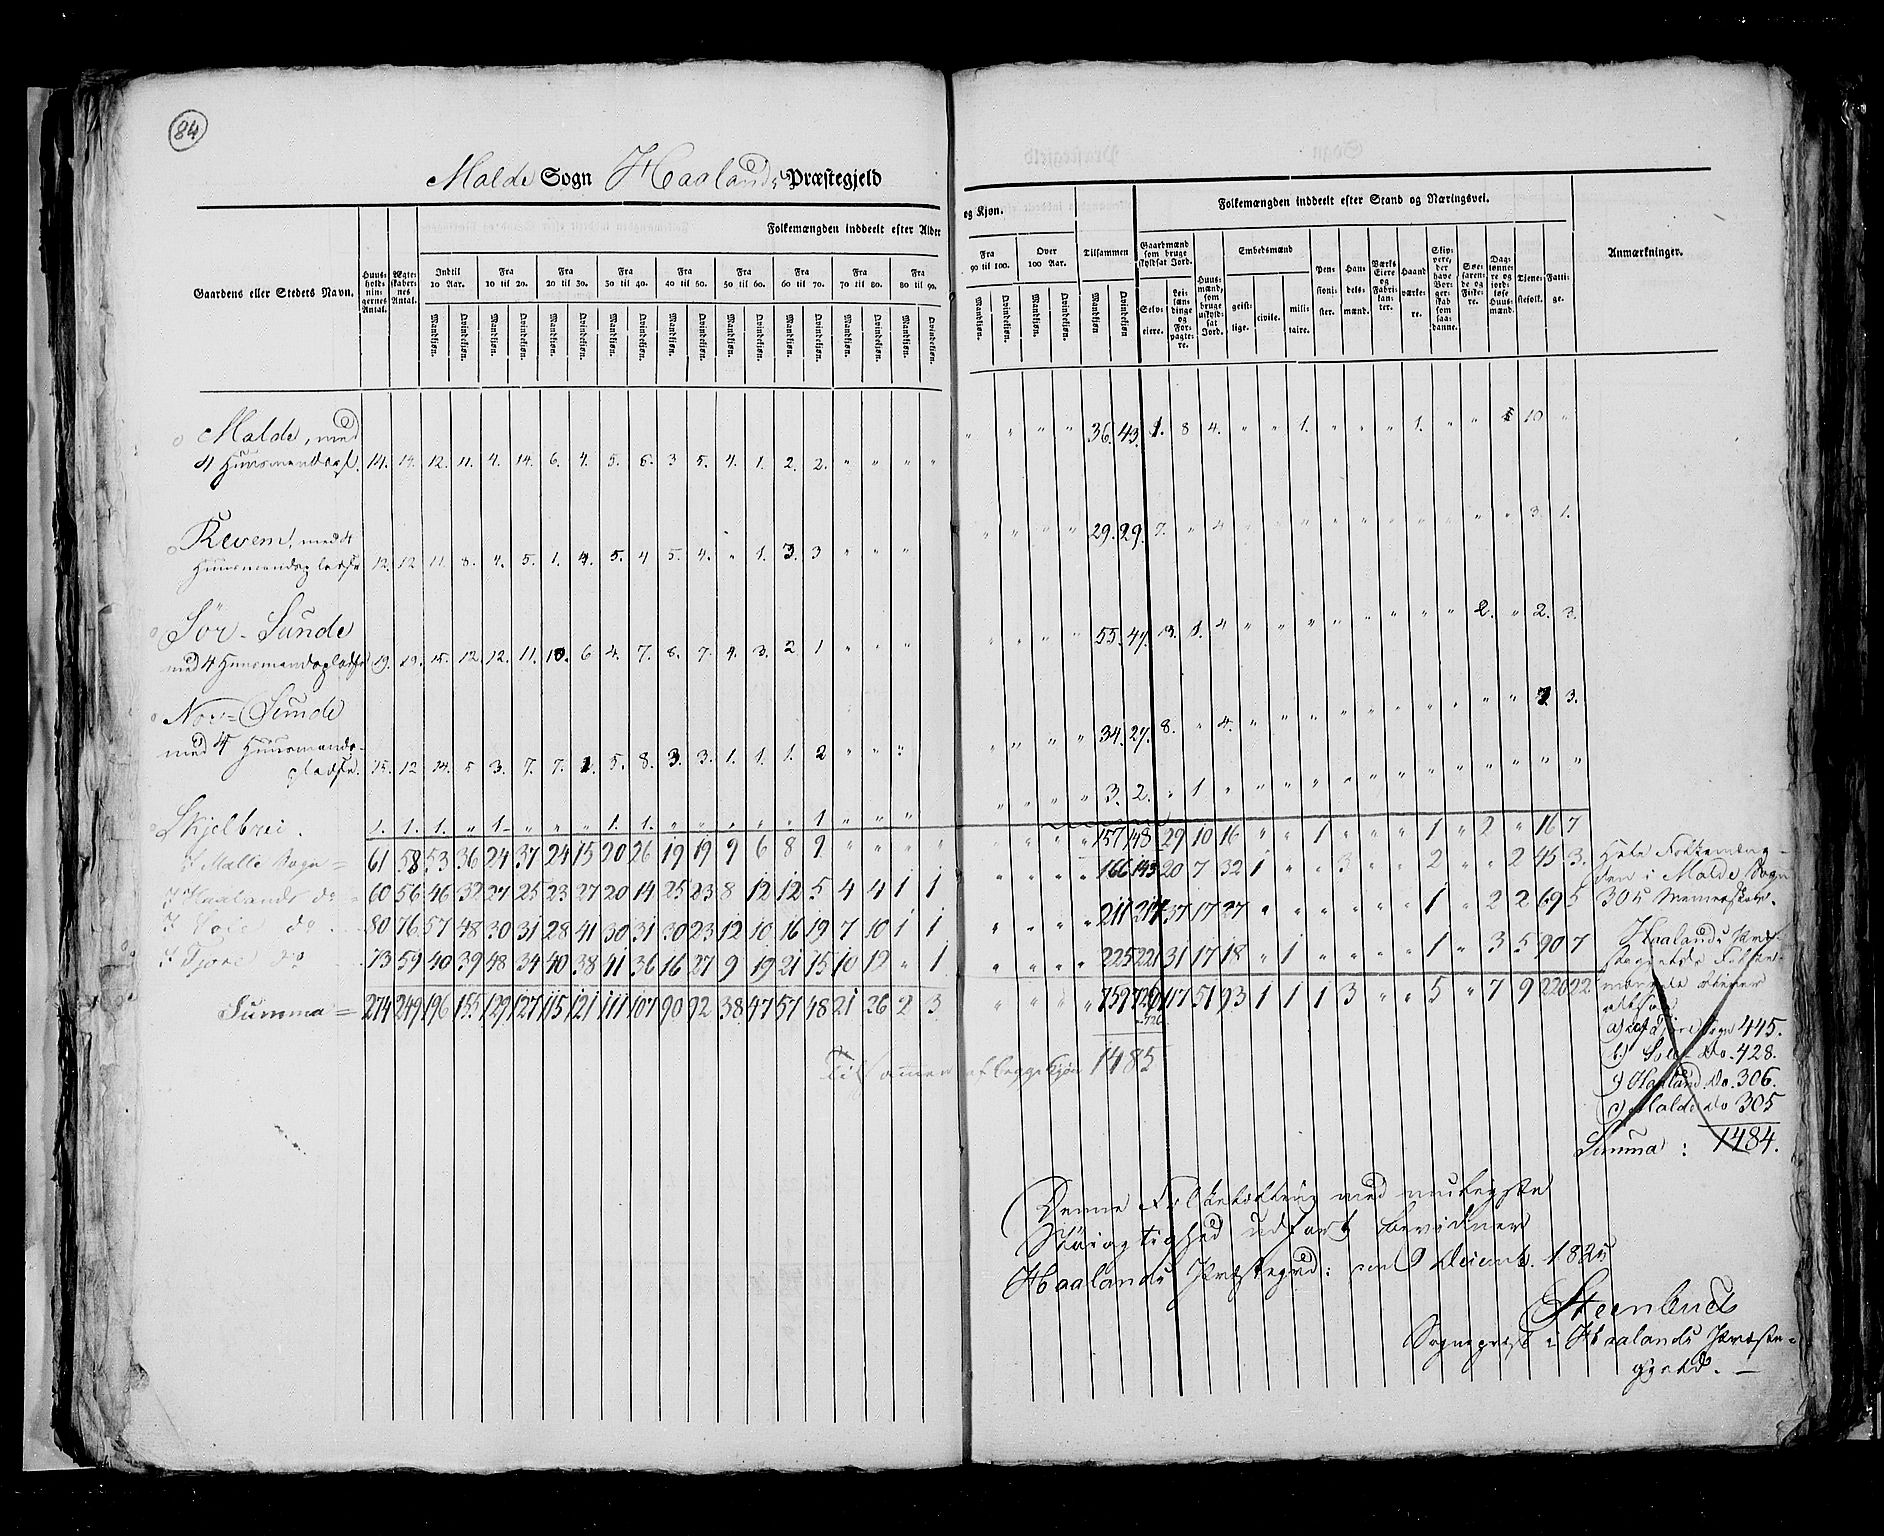 84
Malde Sogn Haalands Præstegjeld
Gaardens eller Stedets Navn.
Huusholdningernes Antal.
Ægteskabernes Antal.
Folkemængden inddeelt efter Alder
og Kjøn.
Indtil 10 Aar. Fra 10 til 20. Fra 20 til 30. Fra 30 til 40. Fra 40 til 50. Fra 50 til 60. Fra 60 til 70. Fra 70 til 80. Fra 80 til 90.
Fra 90 til 100. Over 100 Aar. Tilsammen
Mandkjøn. Qvindekjøn.
Folkemængden inddeelt efter Stand og Næringsvei.
Gaardmænd som bruge skyldsat Jord.
Selveiere. Leilændinge og Forpagtere.
Huusmænd, som bruge uskyldsat Jord.
Embedsmænd
geistlige. civile. militaire.
Pensionister. Handelsmænd. Værkseiere og Fabrikanter. Haandværkere.
Søefarende og Fiskere.
Tjenestefolk. Fattige.
Anmærkninger.
Malde, med
4 Huusmandspl. 14. 14. 12. 11. 4. 14. 6. 4. 5. 6. 3 5. 4. 1. 2. 2. " " " " " " " " 36. 43. 1. 8 4. " " 1. " " " 1. " " 5 10 "
Revem, med 4
Huusmandspladse 12. 12 11. 8. 4. 5. 1. 4. 5. 4 5. 4. " 1. 3. 3 " " " " " " " 29. 29. 7. " 4 " " " " " " " " " " 3. 1.
Sör-Sunde
med 4 Huusmandspladse 19. 19. 15. 12. 12. 11. 10. 6 4. 7. 8. 7. 4. 3. 2 1 " " " " " " " 55. 47. 13. 1. 4 " " " " " " " " 2. " 2. 3.
Nor-Sunde
med 4 Huusmands-
pladse. 15. 12 14. 5 3. 7. 7. 1. 5. 8. 3. 3. 1. 1. 1. 2 " " " " " " " 34. 27. 8. " 4. " " " " " " " " " " 3.
Skjelbrei. 1. 1. 1. " 1 " " " 1. 1. " " " " " 1 " " " " " " " 3. 2. " 1 " " " " " " " " " " " " "
I Malle Sogn = 61 58 53 36 24 37 24 15 20 26 19 19 9 6 8 9 " " " " " " " " 157 148 29 10 16 " " 1 " " " 1 " 2 " 16 7
I Haalands do 60 56 46 32 27 25 23 27 20 14 25 23 8 12 12 5 4 4 1 1 " " " " 166 143 20 7 32 1 " " 3 " " 2 " " 2 45 3.
I Soie do 80 76 57 48 30 31 28 41 30 31 30 23 12 10 16 19 7 10 1 1 " " " " 211 214 37 17 27 " " " " " " 1 " 2 2 69 5
I Tjore do 73 59 40 39 48 34 40 38 41 36 16 27 9 19 21 15 10 12 " 1 " " " " 225 221 31 17 18 " 1 " " " " 1 " 3 5 90 7
Summa = 274 249 196 155 129 127 115 121 111 107 90 92 38 47 57 48 21 26 2 3 " " " " 759 726 117 51 93 1 1 1 3 " " 5 " 7 9 220 22
726
Tilsamen af begge Kjøn 1485
Hele Folkemæng-
den i Malde Sogn
305 Mennesker.
Haalands Præ-
445.
428.
Haaland do. 306.
Malde do 305
Summa: 1484.
Denne Folketælling med mueligste
Nöiagtighed udfört bevidner
Haalands Præstegrd: den 9 Decemb. 1825
Steenbuch
Sogneprest i Haalands Præste-
gjeld.